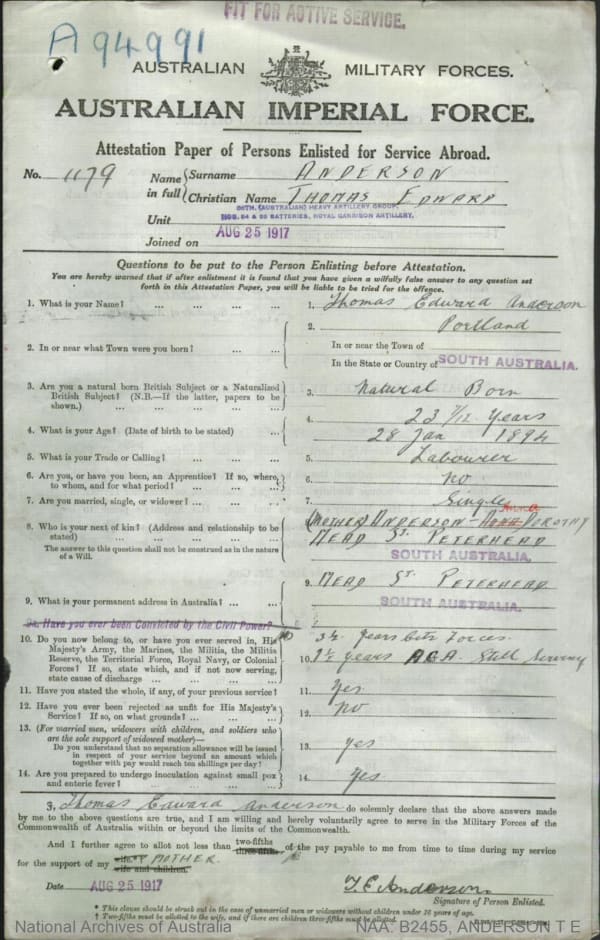 FIT FOR ACTIVE SERVICE.
A94991
AUSTRALIAN MILITARY FORCES.
AUSTRALIAN IMPERIAL FORCE.
Attestation Paper of Persons Enlisted for Service Abroad.
No. 1179 Name in full Surname ANDERSON
Christian Name THOMAS EDWARD
Unit 36TH. (AUSTRALIAN) HEAVY ARTILLERY GROUP,
ROYAL GARRISON ARTILLERY.
Joined on AUG 25 1917
Questions to be put to the Person Enlisting before Attestation.
You are hereby warned that if after enlistment it is found that you have given a wilfully false answer to any question set
forth in this Attestation Paper, you will be liable to be tried for the offence.
1. What is your Name? ... ... ... ... 1. Thomas Edward Anderson
2. In or near what Town were you born? ... ... 2. Portland
In or near the Town of
In the State or Country of SOUTH AUSTRALIA.
3. Are you a natural born British Subject or a Naturalized
British Subject? (N.B.—If the latter, papers to be
shown.) ... ... ... ... ... 3. Natural Born
4. What is your Age? (Date of birth to be stated) ... 4. 23 7/12 years
28 Jan 1894
5. What is your Trade or Calling? ... ... ... 5. Labourer
6. Are you, or have you been, an Apprentice? If so, where,
to whom, and for what period? ... ... ... 6. No
7. Are you married, single, or widower? ... ... 7. Single
8. Who is your next of kin? (Address and relationship to be
stated) ... ... ... ... ... (MOTHER) ANDERSON DOROTHY
The answer to this question shall not be construed as in the nature
of a Will.
MEAD ST. PETERHEAD
SOUTH AUSTRALIA.
9. What is your permanent address in Australia? ... ... 9. MEAD ST PETERHEAD
SOUTH AUSTRALIA.
9a. Have you ever been Convicted by the Civil Power?
10. Do you now belong to, or have you ever served in, His
Majesty's Army, the Marines, the Militia, the Militia
Reserve, the Territorial Force, Royal Navy, or Colonial
Forces? If so, state which, and if not now serving,
state cause of discharge ... ... ... ...
3½ years Citz Forces.
10. 1½ years AGA Still Serving
11. Have you stated the whole, if any, of your previous service? 11. Yes
12. Have you ever been rejected as unfit for His Majesty's
Service? If so, on what grounds? ... ... ... 12. No
13. (For married men, widowers with children, and soldiers who
are the sole support of widowed mother)—
Do you understand that no separation allowance will be issued
in respect of your service beyond an amount which
together with pay would reach ten shillings per day? 13. yes
14. Are you prepared to undergo inoculation against small pox
and enteric fever? ... ... ... ... 14. Yes
I, Thomas Edward Anderson do solemnly declare that the above answers made
by me to the above questions are true, and I am willing and hereby voluntarily agree to serve in the Military Forces of the
Commonwealth of Australia within or beyond the limits of the Commonwealth.
And I further agree to allot not less than two-fifths three-fifths of the pay payable to me from time to time during my service
for the support of my wife MOTHER
wife and children.
Date AUG 25 1917 T.E. Anderson
Signature of Person Enlisted.
* This clause should be struck out in the case of unmarried men or widowers without children under 16 years of age.
† Two-fifths must be allotted to the wife, and if there are children three-fifths must be allotted.
National Archives of Australia NAA: B2455, ANDERSON T E